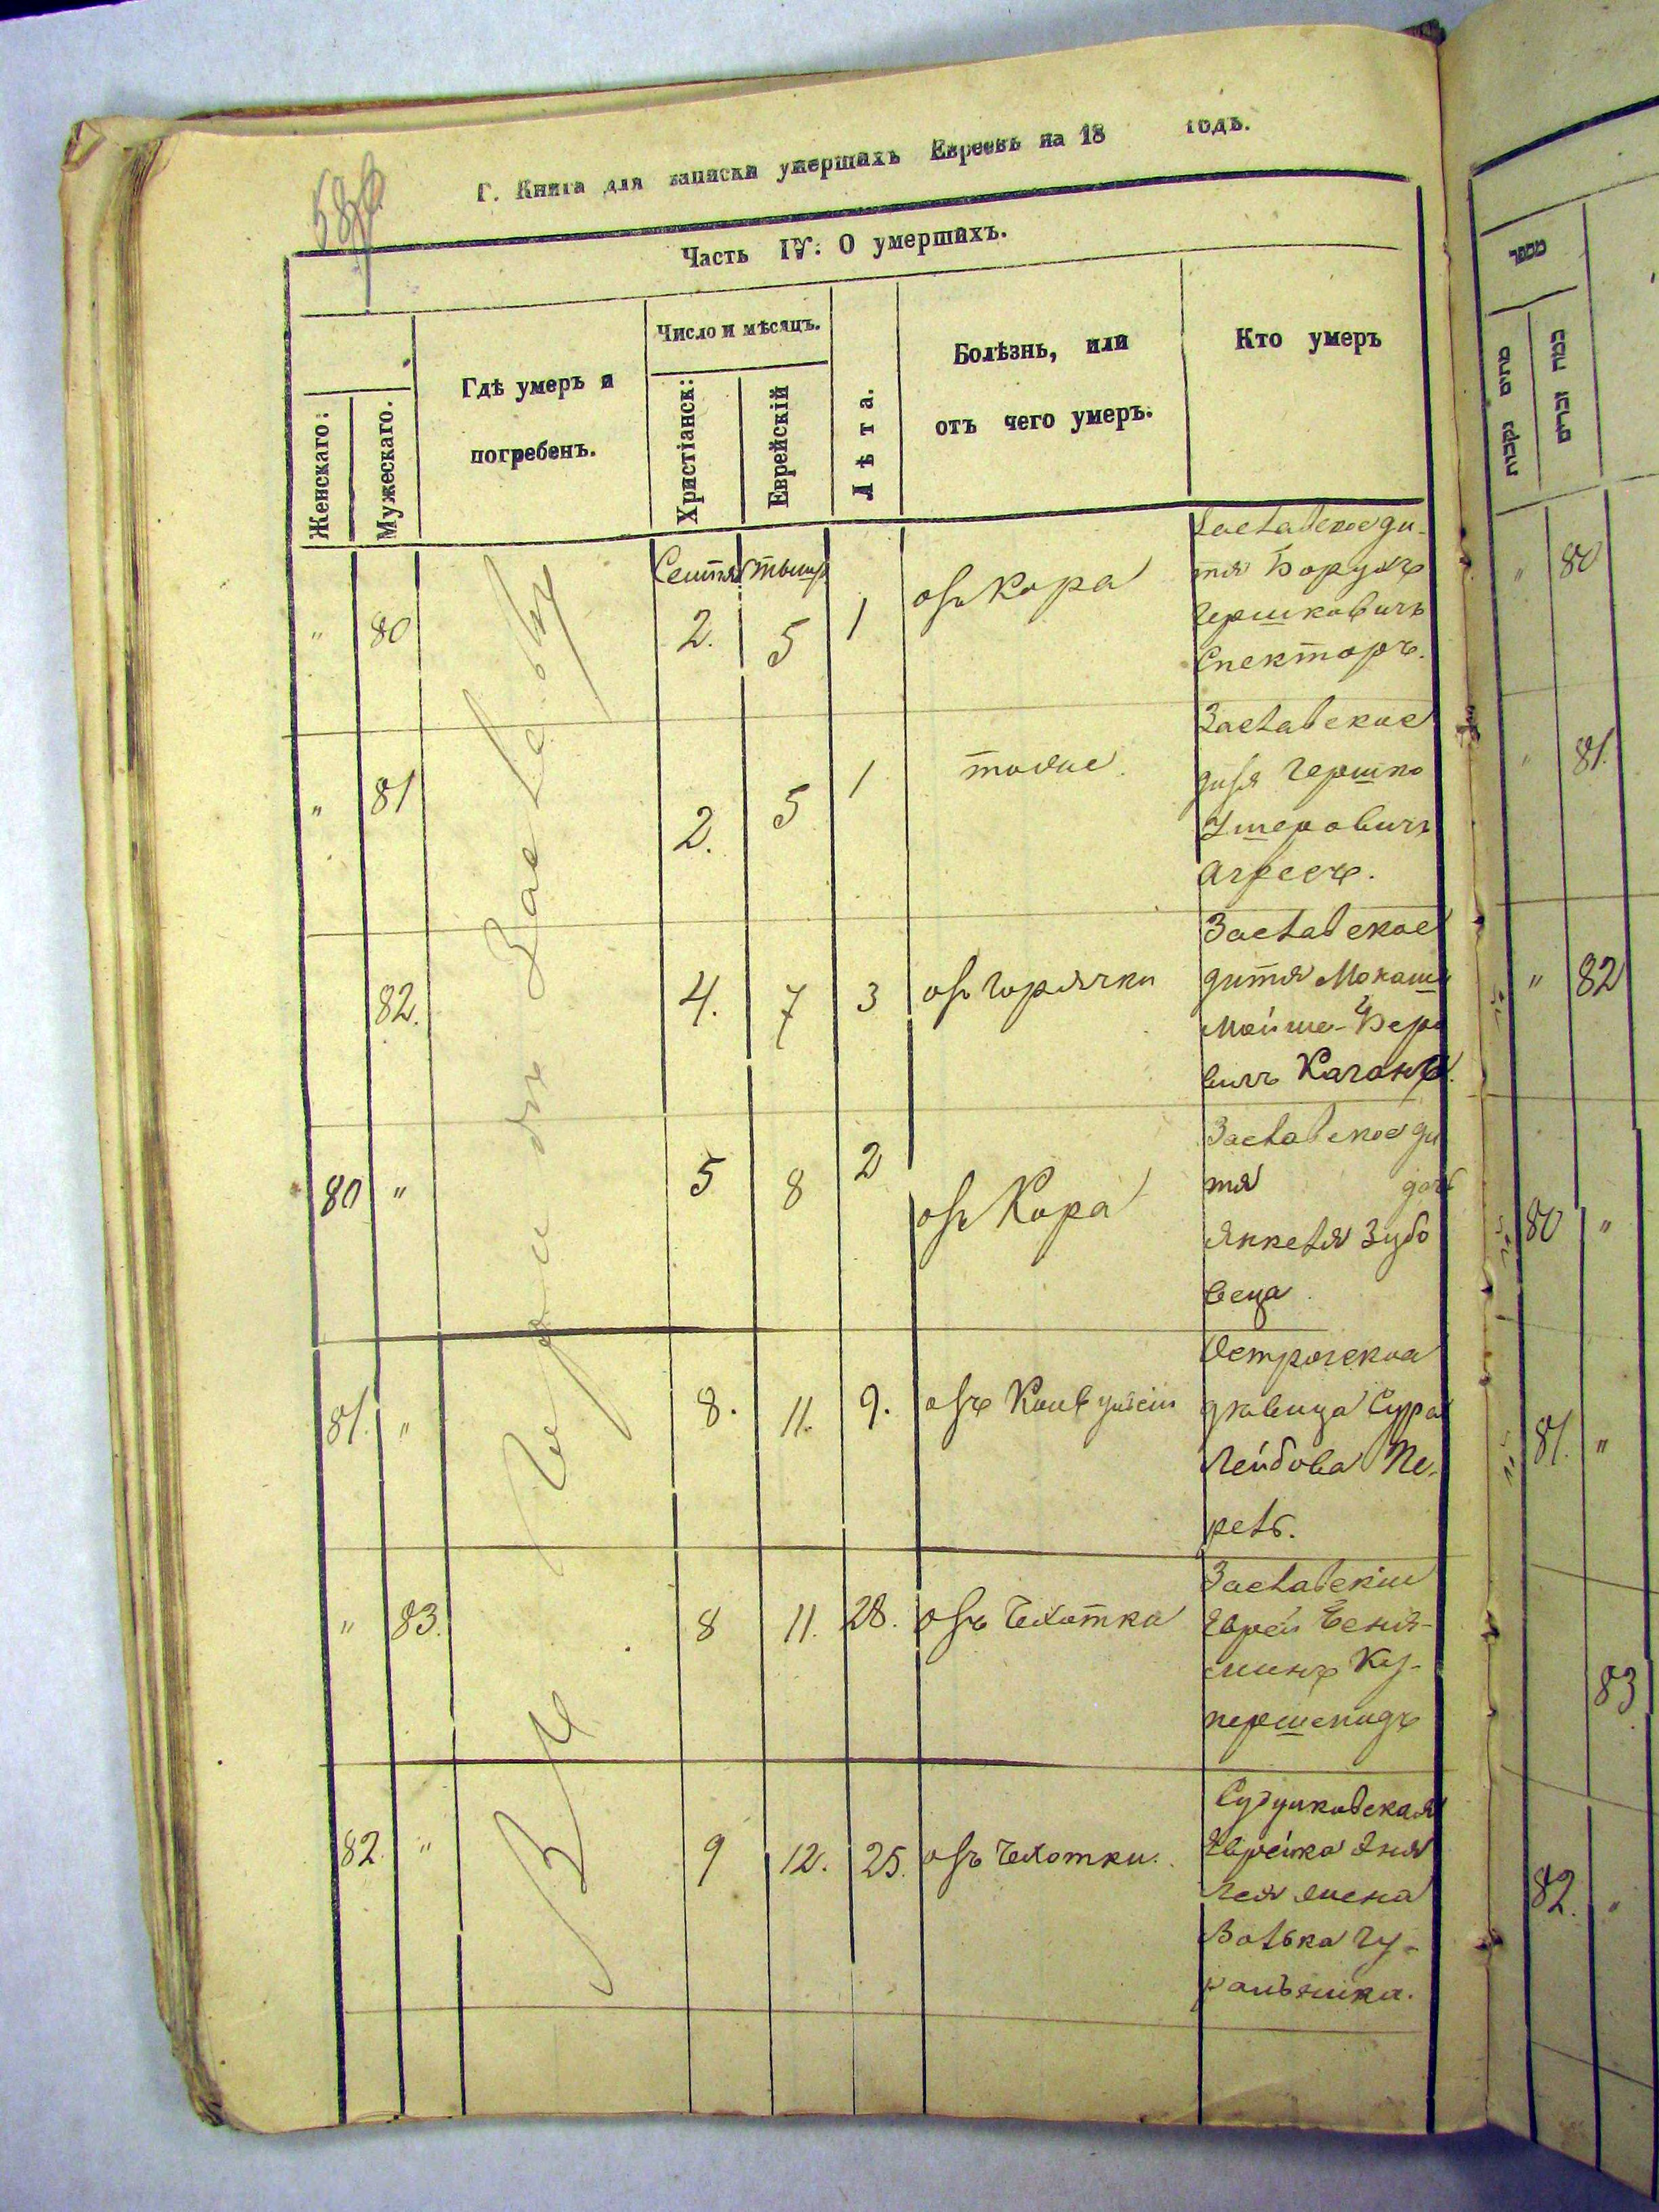 Г. Книга для записки умершихъ Евреевъ на 18 годъ.
Часть IV. О умершихъ.
Женскаго:
Мужескаго.
Гдѣ умеръ и
погребенъ.
Число и мѣсяцъ.
Христіанск:
Еврейскій
Лѣта.
Болѣзнь, или
отъ чего умеръ.
Кто умеръ
מספר
מתים נקבות
כמה זכרים
Въ городѣ Заславѣ
" 80 2. 5 1 отъ Кора
Заславское ди-
тя Борухъ
Гершковичъ
Спекторъ.
" 81 2. 5 1 тоже
Заславское
дитя Гершко
Ушеровичъ
82. 4. 7 3 отъ горячки
Заславское
дитя
Мойше-Беро
вичъ Каганъ.
80 " 5 8 2 отъ Кора
Заславское ди
тя дочь
Янкеля Зубо
веца
81. " 8. 11. 9. отъ
Острогская
дѣвица Сура
Лейбова Пе-
рель.
" 83. 8 11. 28. отъ Чахотки
Заславскій
Еврей Беня-
минъ Ку-
першмидъ
82. " 9 12. 25. отъ Чахотки.
Судилковская
Еврейка Эня
Лея жена
Волька Гу-
ральника.
" 80
" 81.
" 82
80 "
81. "
83
82. "